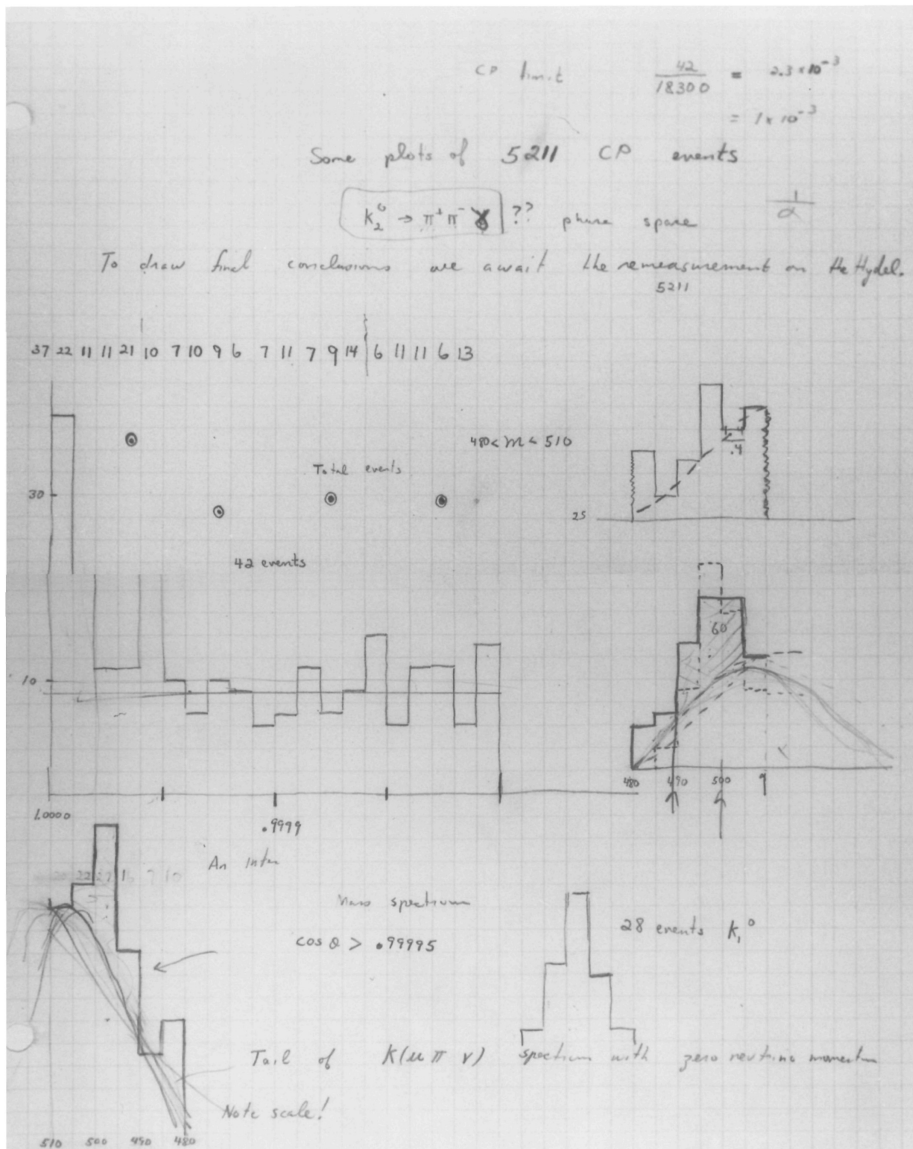 CP limit 42/18300 = 2.3 × 10⁻³
= 1 × 10⁻³
Some plots of 5211 CP events
K₂⁰ → π⁺ π⁻ ?? phase space 1/α
To draw final conclusions we await the remeasurement on the Hydel.
5211
37 22 11 11 21 10 7 10 9 6 7 11 7 9 14 6 11 11 6 13
480 < m < 510
.4
Total events
30
25
42 events
60
10
480 490 500
1.0000
.9999
An inter
Mass spectrum
cos θ > .99995
28 events K₁⁰
Tail of K(μ π ν) spectrum with zero neutrino momentum
Note scale!
510 500 490 480